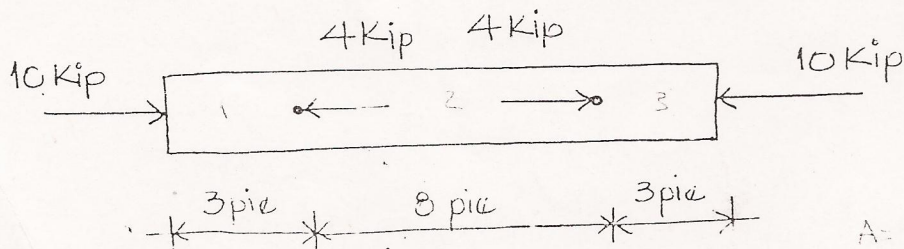 4 Kip 4 Kip
10 Kip 10 Kip
1 2 3
3 pie 8 pie 3 pie
A=